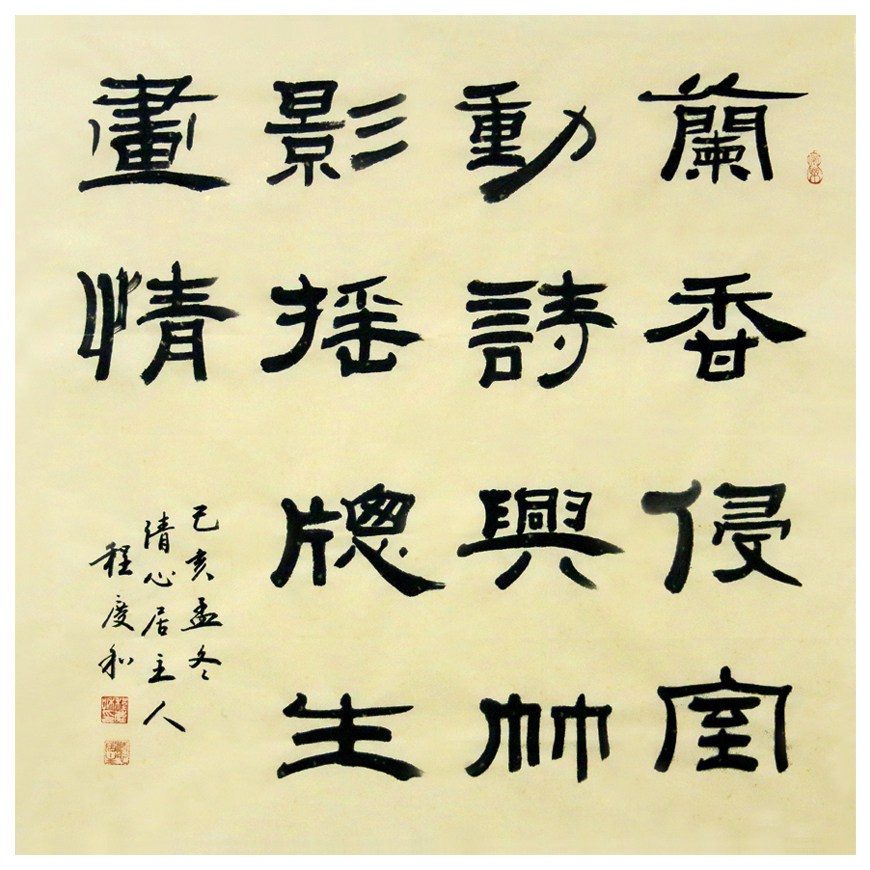 蘭香侵室
動詩興竹
影搖牕生
畫情
己亥孟冬
清心居主人
程慶和